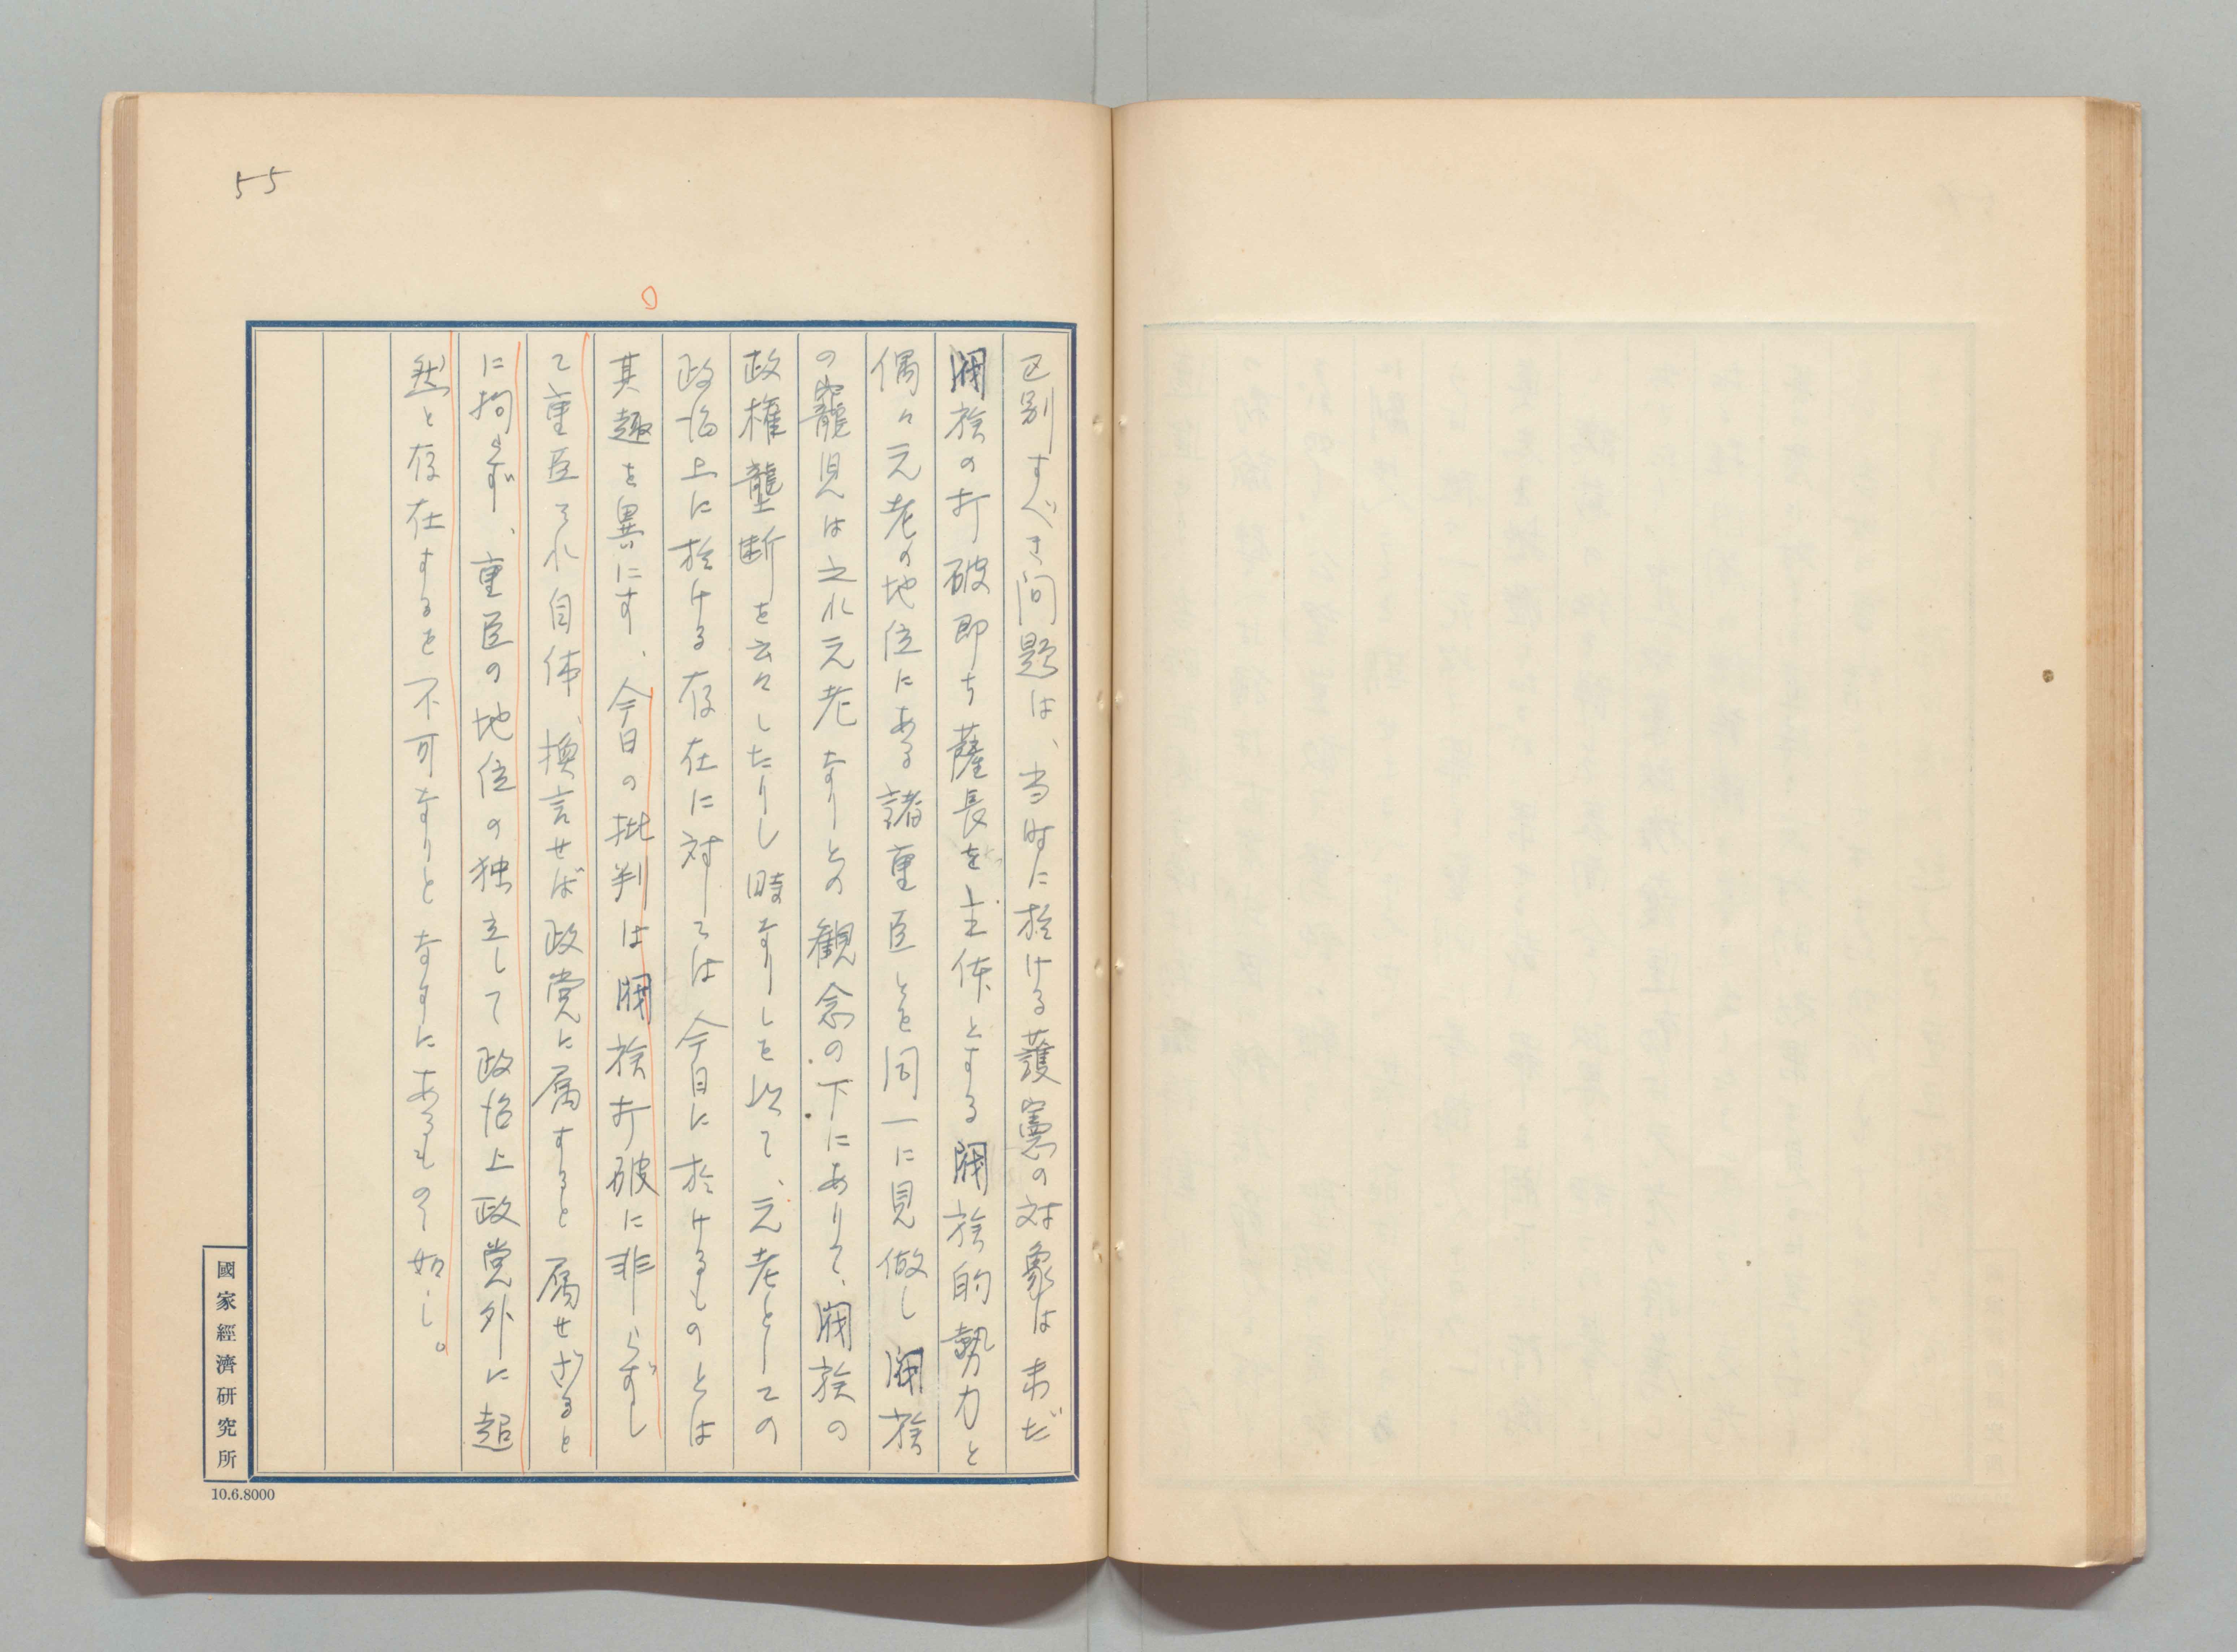 55
区別すべき問題は、当時に於ける護憲の対象は未だ
閥族の打破即ち薩長を主体とする閥族的勢力と
偶々元老の地位にある諸重臣とを同一に見做し閥族
の寵児は之れ元老なりとの観念の下にありて、閥族の
政権壟断を云々したりし時なりしを以て、元老としての
政治上に於ける存在に対しては今日に於けるものとは
其趣を異にす、今日の批判は閥族打破に非らずし
て重臣それ自体、換言せば政党に属すると属せざると
に拘らず、重臣の地位の独立して政治上政党外に超
然と存在するを不可なりとなすにあるものゝ如し。
國家經濟研究所
10.6.8000